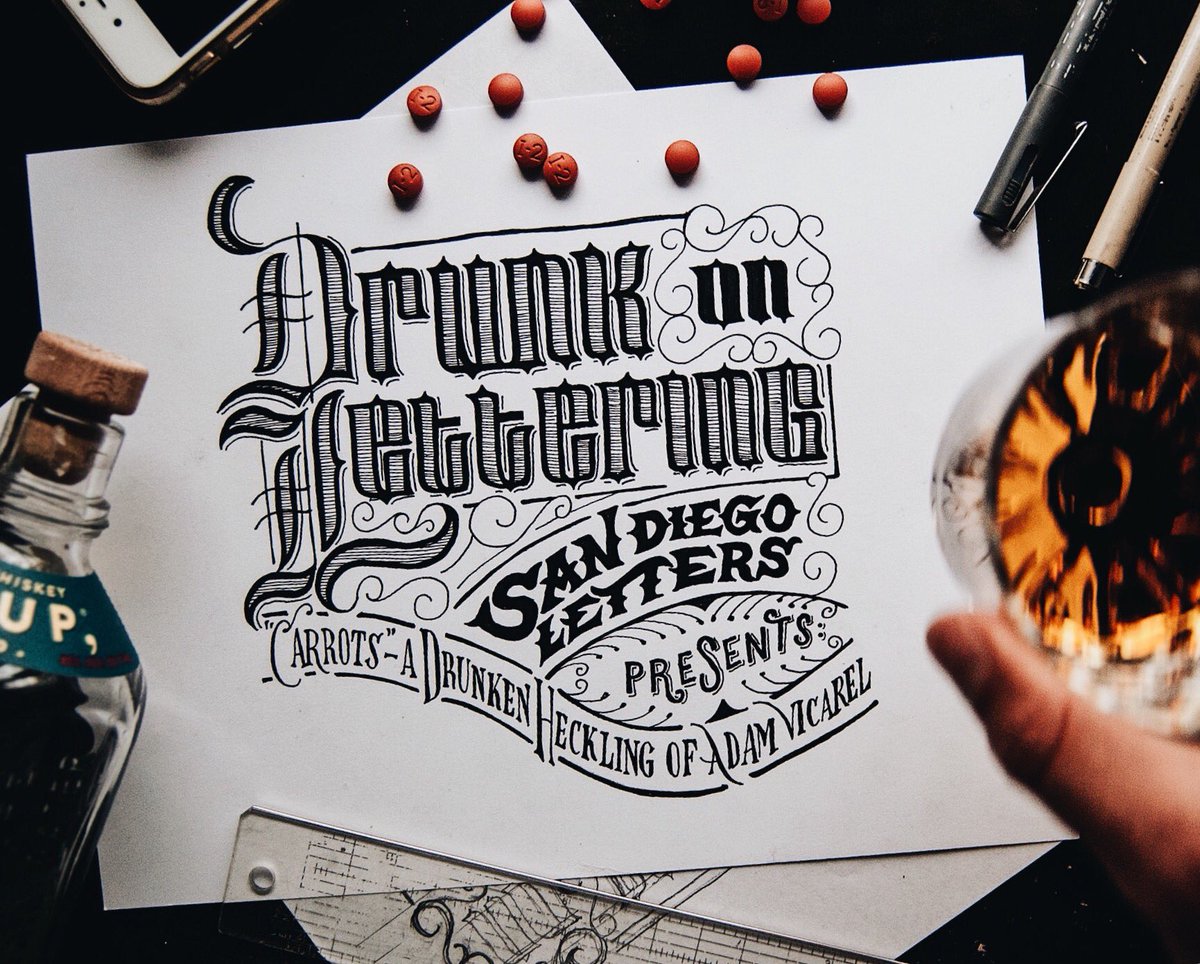 I-2
I-2
I-2
I-2
Drunk on
Lettering
SAN DIEGO
LETTERS
PRESENTS:
"CARROTS"-A DRUNKEN HECKLING OF ADAM VICAREL
WHISKEY
UP,